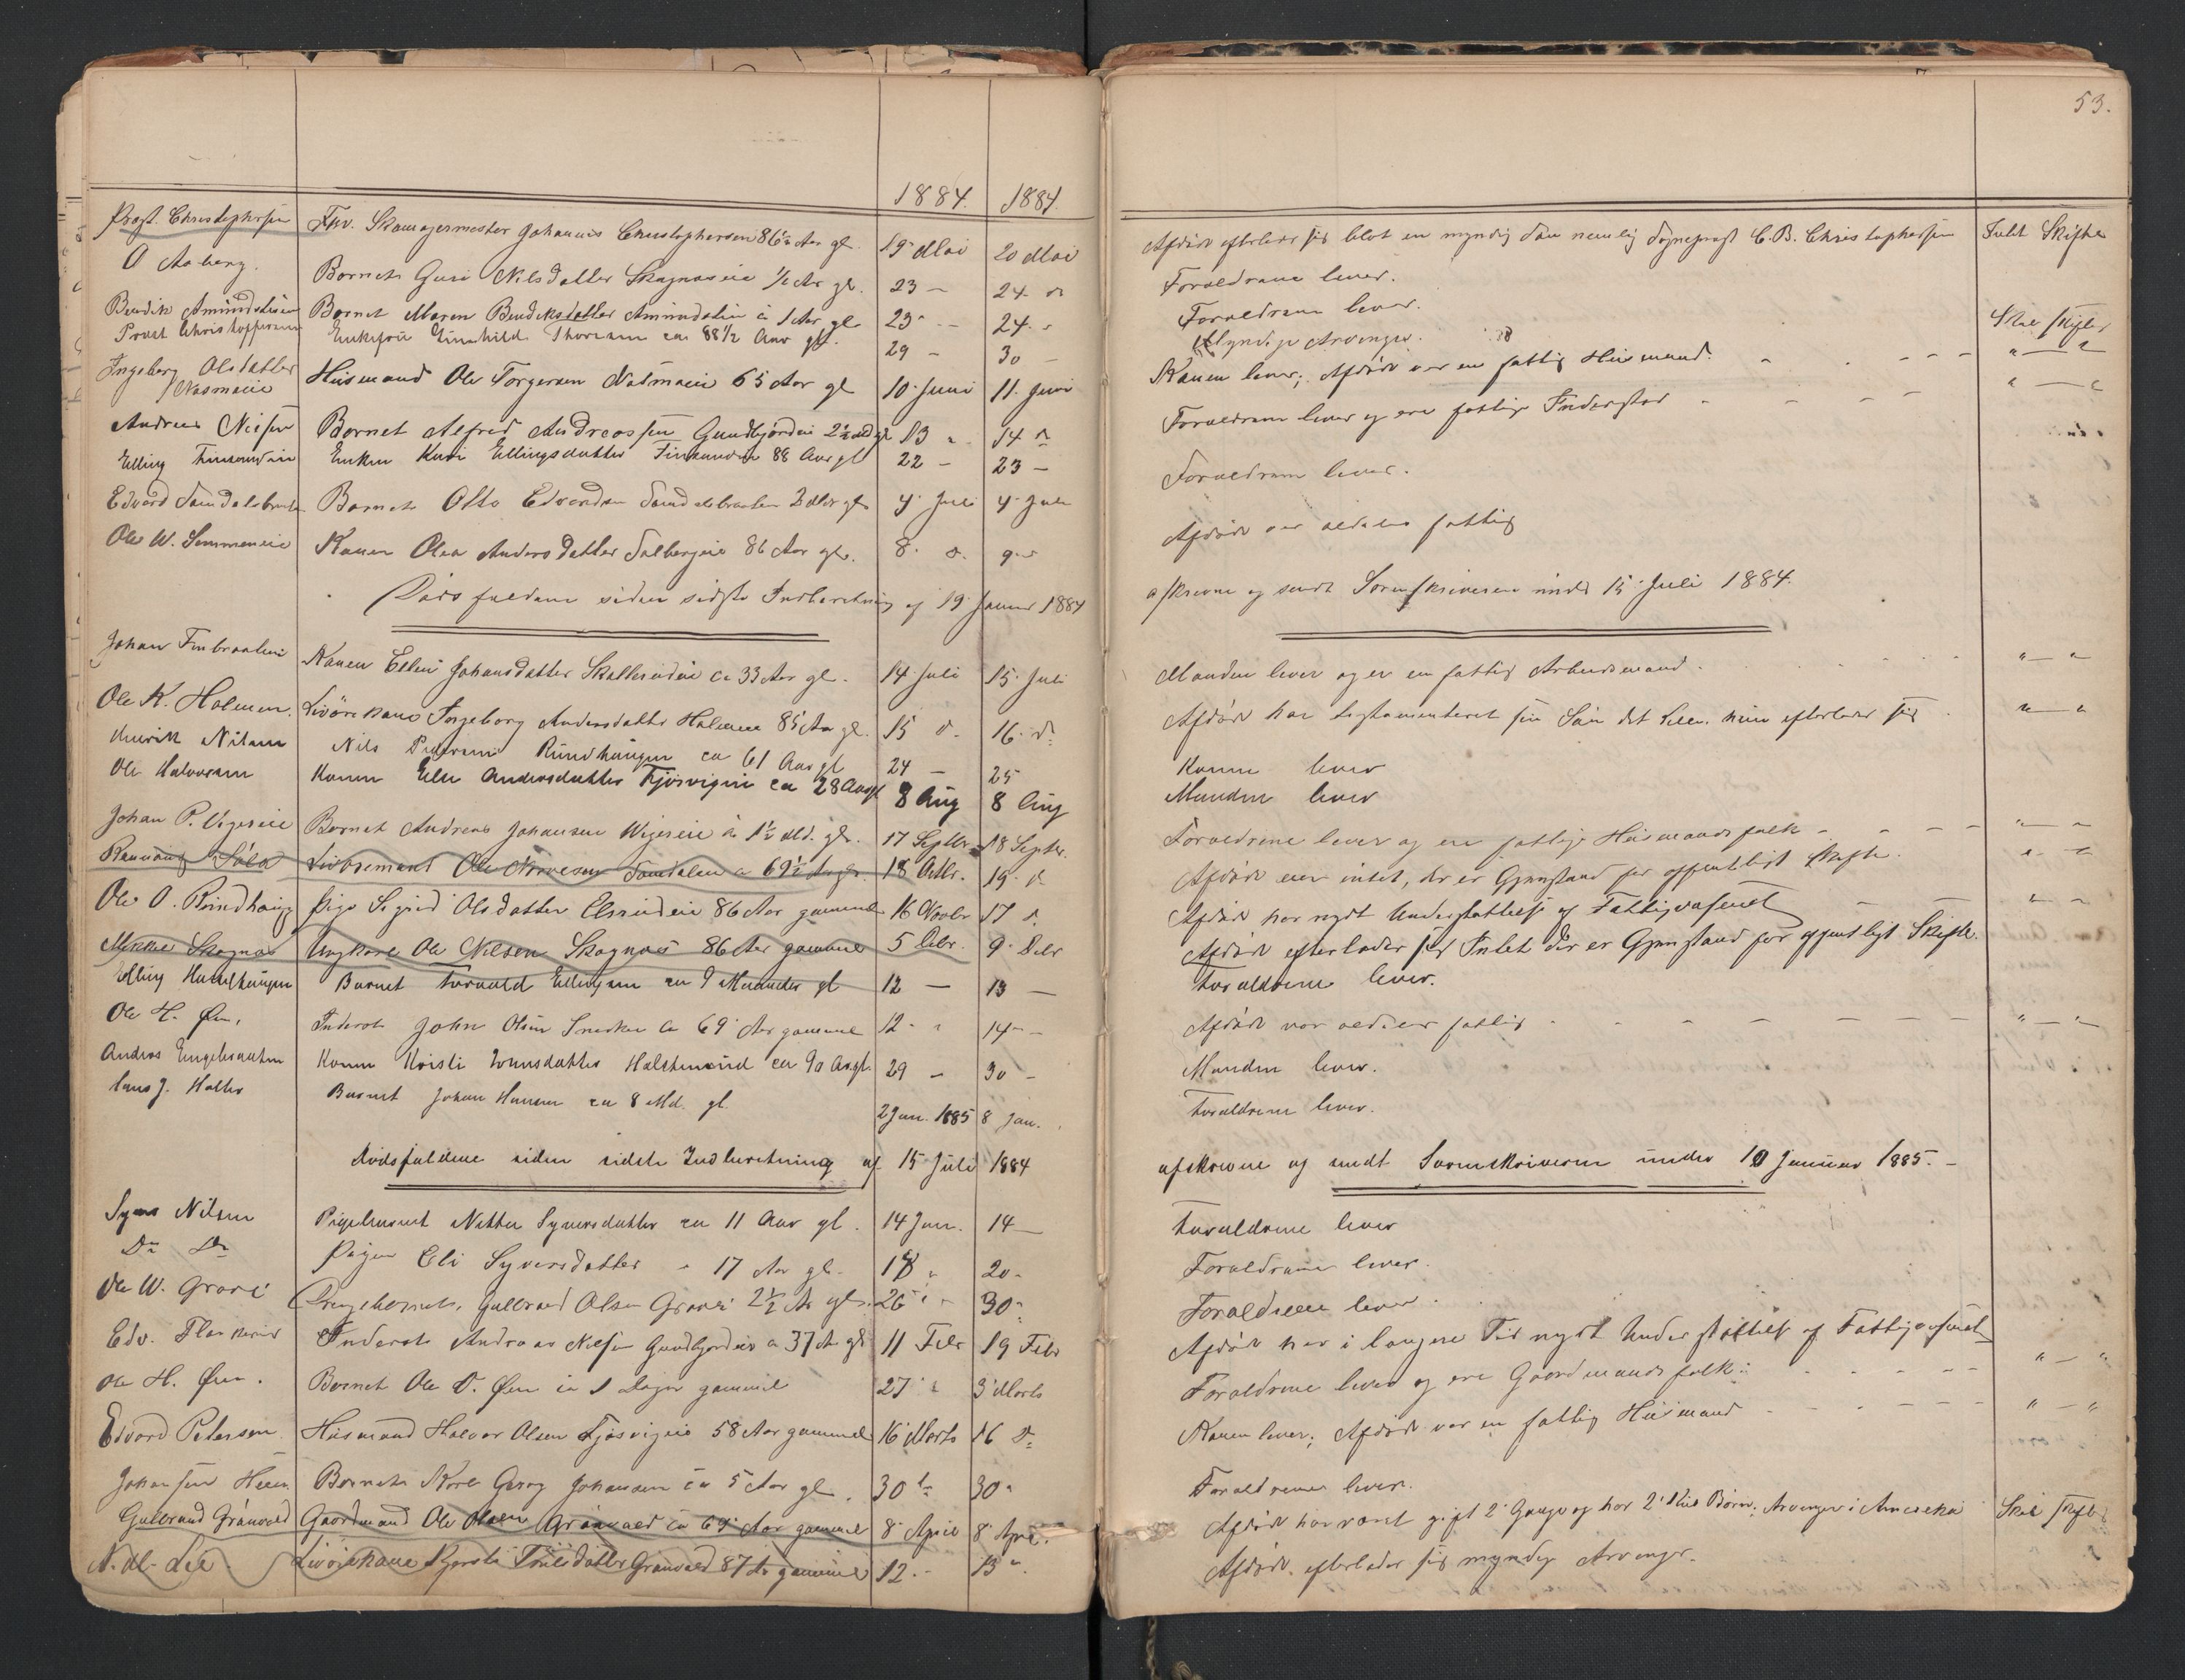 53.
1884. 1884.
Progt. Christophersen Fhv. Skomagermester Johannes Christophersen 86½ Aar gl. 19 Mai 20 Mai Afdøde efterlader sig blot en myndig Søn nemlig Sogneprest C. B. Christophersen Intet Skifte
O Aaberg. Barnet Guri Nilsdatter Skagnæseie ½ Aar gl. 23 – 24 Forældrene lever.
Bendik Amundstuen Barnet Maren Bendiksdatter Amundstuen 1 Aar gl. 23 – 24 Forældrene lever.
Provst Christoffersen Enkefru Gunhild Thoresen ca 88½ Aar gl. 29 – 30 – Myndige Arvinger. Skal skiftes
Ingeborg Olsdatter
Næsmoeie Husmand Ole Torgersen Næsmoeie 65 Aar gl 10 Juni 11. Juni Konen lever; Afdøde var en fattig Husmand. " — "
Andreas Nilsen Barnet Alfred Andreassen Gundhjordeie 2½ Md gl 13 " 14 Forældrene lever og ere fattige Inderster " — "
Elling Finsandeie Enken Kari Ellingsdatter Finsandeie 88 Aar gl 22 – 23 –
Edvard Sandalsbraaten Barnet Otto Edvardsen Sandalsbraaten 3 Aar gl 4 Juli 4 Juli Forældrene lever.
Ole W. Semmeneie Konen Olea Andersdatter Solbergeie 86 Aar gl. 8 9 Afdøde var aldeles fattig
Dødsfaldene siden sidste Indberetning af 19 Januar 1884 afskrevne og sendt Sorenskriveren under 15 Juli 1884.
Johan Finbraaten Konen Eline Johansdatter Skollerudeie ca 33 Aar gl. 14 Juli 15 Juli Manden lever og er en fattig Arbeidsmand. " — "
Ole K. Holmen. Livørekone Ingeborg Andersdatter Holmen 85 Aar gl. 15 16 Afdøde har testamenteret sin Søn det hun efterlader sig " — "
Henrik Nilsen Nils Pedersen Rundhaugen ca 61 Aar gl 24 – 25 Konen lever
Ole Halvorsen Konen Else Andersdatter Fjøsvigeie ca 28 Aar gl 8 Aug 8 Aug Manden lever
Johan P. Vigeseie Barnet Andreas Johansen Vigeseie 1½ Md. gl. 17 Septbr 18 Septbr. Forældrene lever og ere fattige Husmandsfolk " — "
Livøremand Ole Sandalen 69½ Aar gl. 18 Octbr. 19 Afdøde eier intet, der er Gjenstand for offentligt Skifte. " — "
Ole O. Rundhaug Pige Sigrid Olsdatter Elsrudeie 86 Aar gammel 16 Novbr 17 Afdøde har nydt Understøttelse af Fattigvæsenet " — "
Mikkel Skagnæs Ungkarl Ole Nilsen Skagnæs 86 Aar gammel 5 Debr. 9 Debr Afdøde efterlader sig Intet der er Gjenstand for offentligt Skifte.
Elling Barnet Torvald Ellingsen ca 9 Maaneder gl 12 — 13 — Forældrene lever.
Ole H. Øen. Inderst John Olsen Snedker ca 69 Aar gammel 12 " 14 – Afdøde var aldeles fattig " — "
Andreas Konen Kristi ca 90 Aar gl. 29 – 30 – Manden lever.
Hans J. Barnet Johan Hansen ca 8 Md. gl. 2 Jan. 1885 8 Jan. Forældrene lever.
Dødsfaldene siden sidste Indberetning af 15 Juli 1884 afskrevne og sendt Sorenskriveren under 10 Januar 1885. –
Syver Nilsen Pigebarnet Netta Syversdatter ca 11 Aar gl. 14 Jan. 14 — Forældrene lever
Do Do Pigen Eli Syversdatter " 17 Aar gl. 18 " 20 Forældrene lever.
Ole W. Grovi Drengebarnet Gulbrand Olsen Grovi 2½ Aar gl. 26 30 Forældrene lever.
Edv. Inderst Andreas Nilsen Gundhjordeie 37 Aar gl 11 Febr 19 Febr Afdøde har i længere Tid nydt Understøttelse af Fattigvæsenet " — "
Ole H. Øen. Barnet Ole O. Øen 1 Dage gammel 27 3 Marts Forældrene lever og ere Gaardmandsfolk. " — "
Edvard Petersen Husmand Halvor Olsen Fjøsvigeie 58 Aar gammel 16 Marts 16 Konen lever; Afdøde var en fattig Husmand
Johansen Heen Barnet Karl Georg Johansen ca 5 Aar gl. 30 30 Forældrene lever.
Gulbrand Grønvold Gaardmand Ole Olsen Grønvold ca 69 Aar gammel 8 April 8 April Afdøde har været gift 2 Gange og har 2 Kuld Børn; Arvinger i Amerika Skal skiftes
N. M. Lie Livørekone Kjersti Grønvold 87 Aar gammel 12 13 " Afdøde efterlader sig myndige Arvinger.